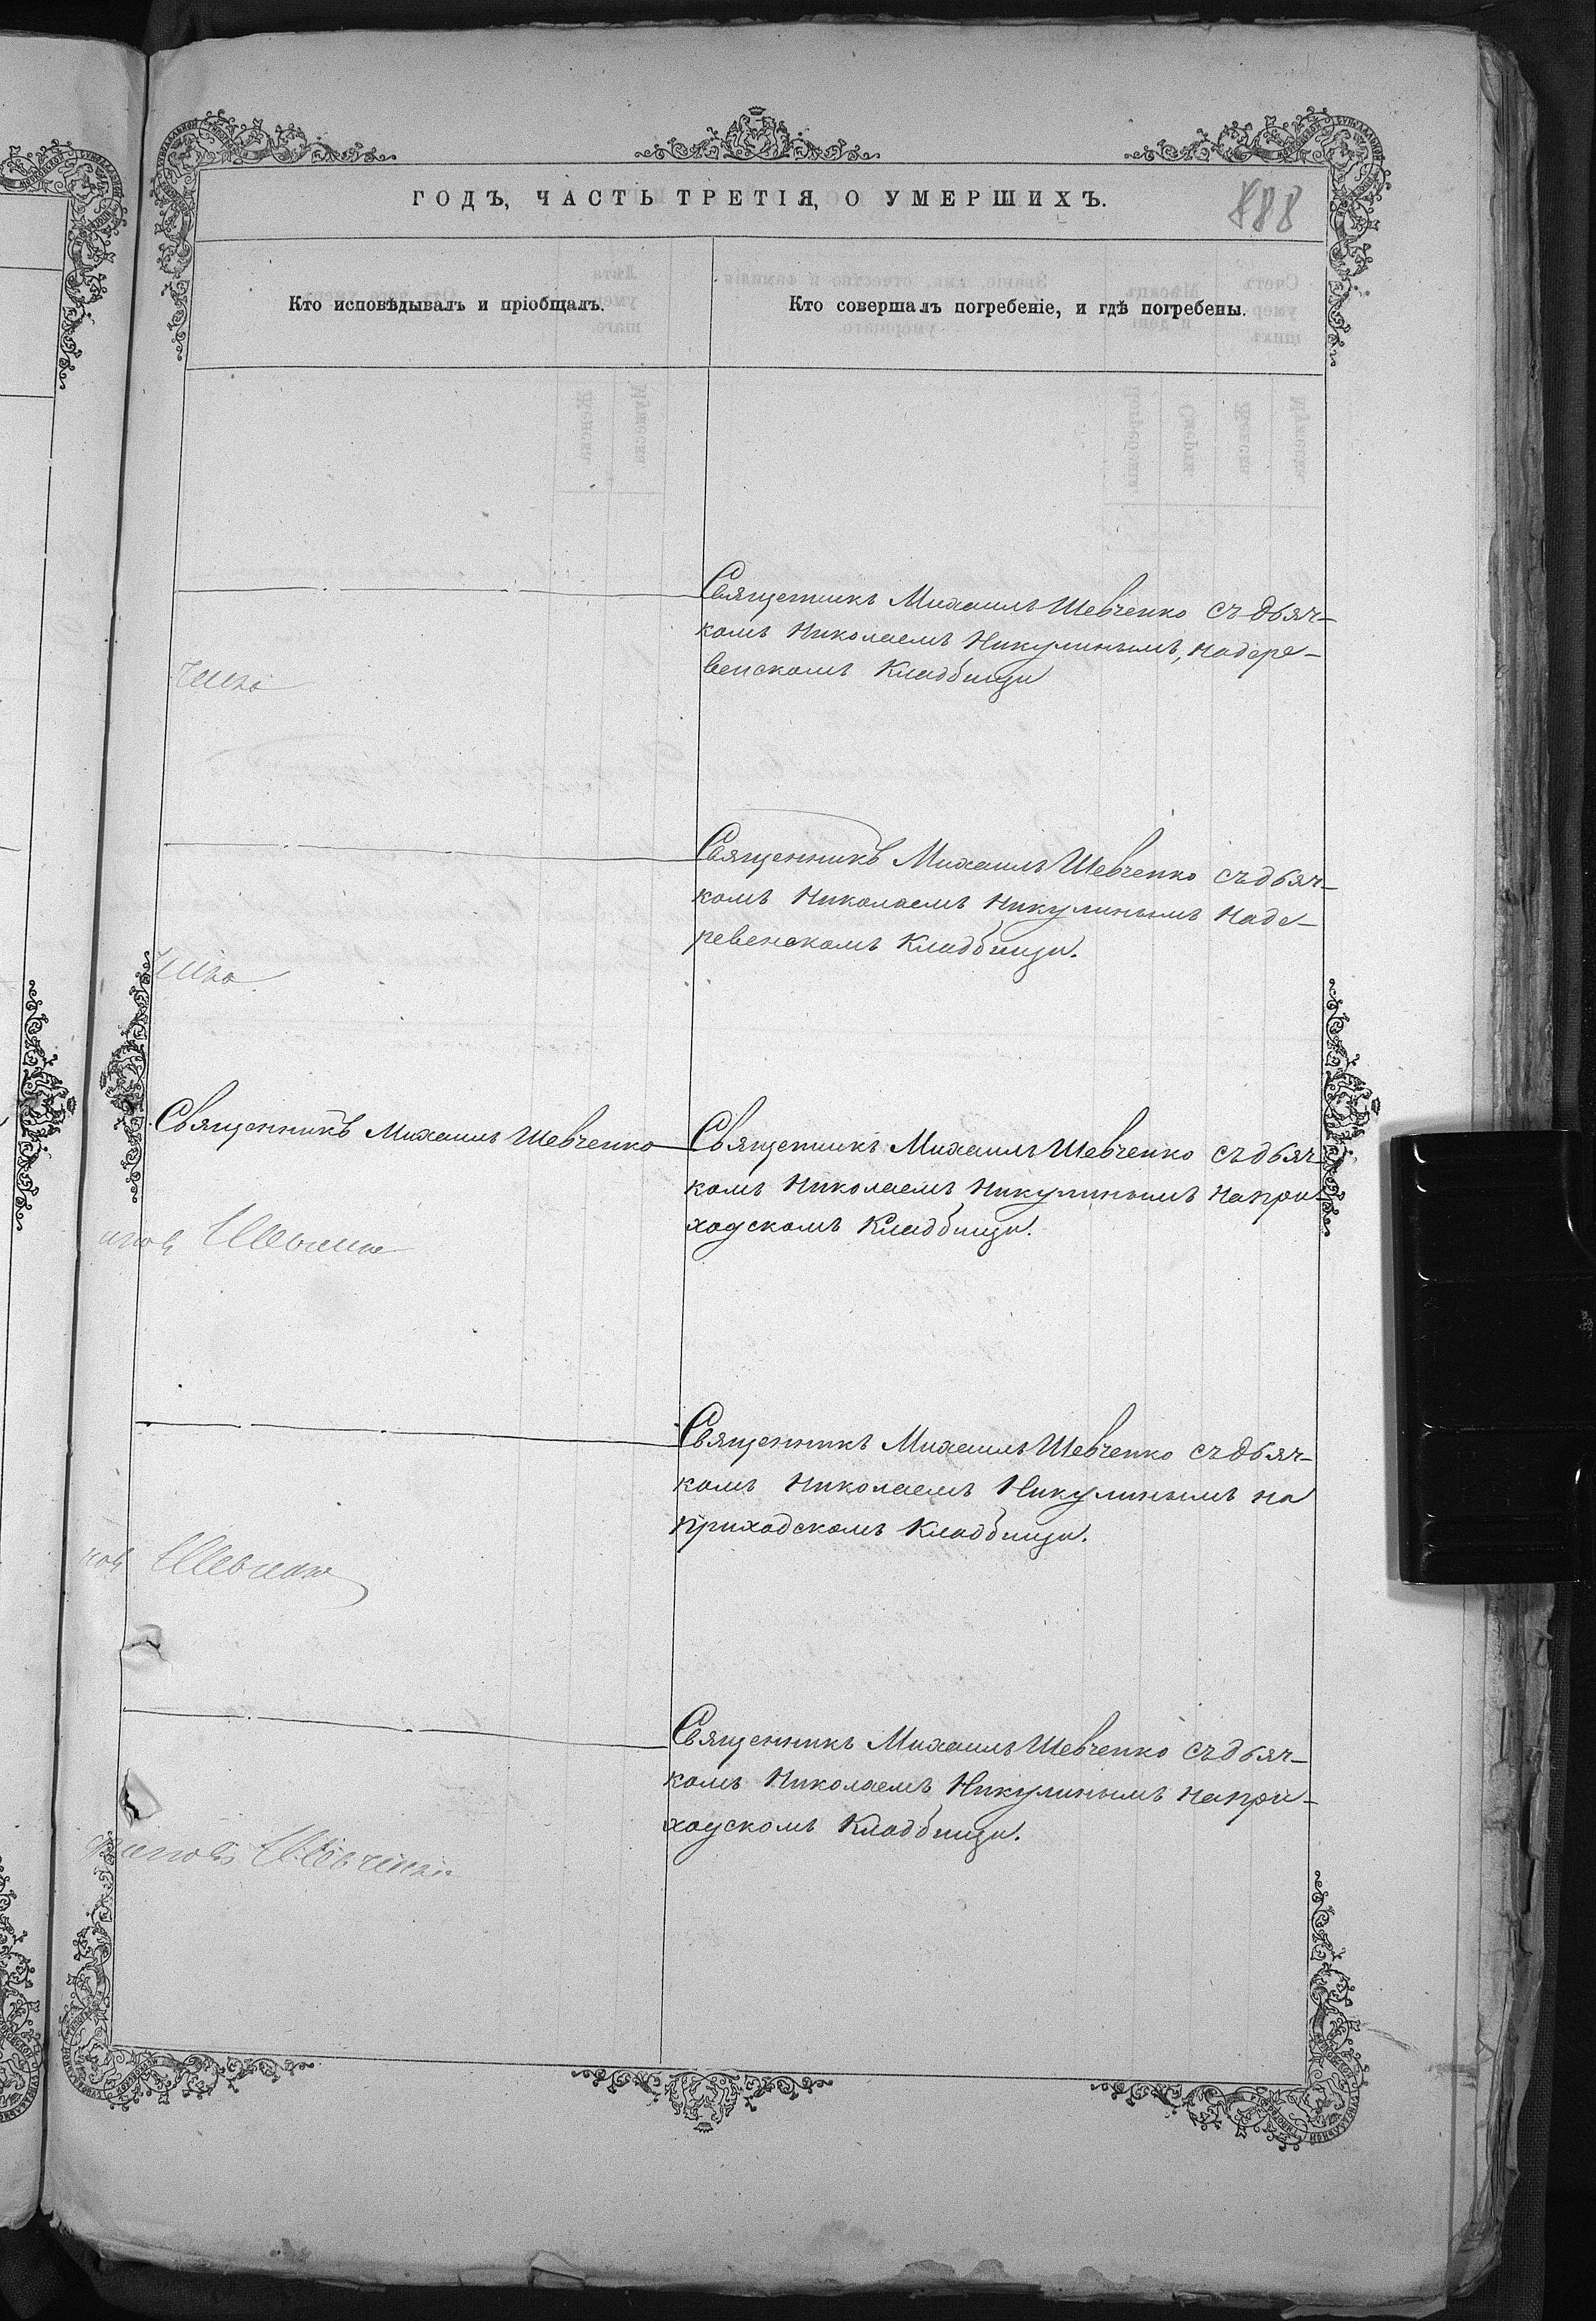 ГОДЪ, ЧАСТЬ ТРЕТІЯ, О УМЕРШИХЪ.
188
Кто исповѣдывалъ и пріобщалъ.
Кто совершалъ погребеніе, и гдѣ погребены.
Священникъ Михаилъ Шевченко съ дьяч-
комъ Николаемъ Никулинымъ, на дере-
венскомъ Кладбищи
Священникъ Михаилъ Шевченко съ дьяч-
комъ Николаемъ Никулинымъ на де-
ревенскомъ Кладбищи.
Священникъ Михаилъ Шевченко
Священникъ Михаилъ Шевченко съ дьяч-
комъ Николаемъ Никулинымъ на при-
ходскомъ Кладбищи.
Священникъ Михаилъ Шевченко съ дьяч-
комъ Николаемъ Никулинымъ на
приходскомъ Кладбищи.
Священникъ Михаилъ Шевченко съ дьяч-
комъ Николаемъ Никулинымъ на при-
ходскомъ Кладбищи.